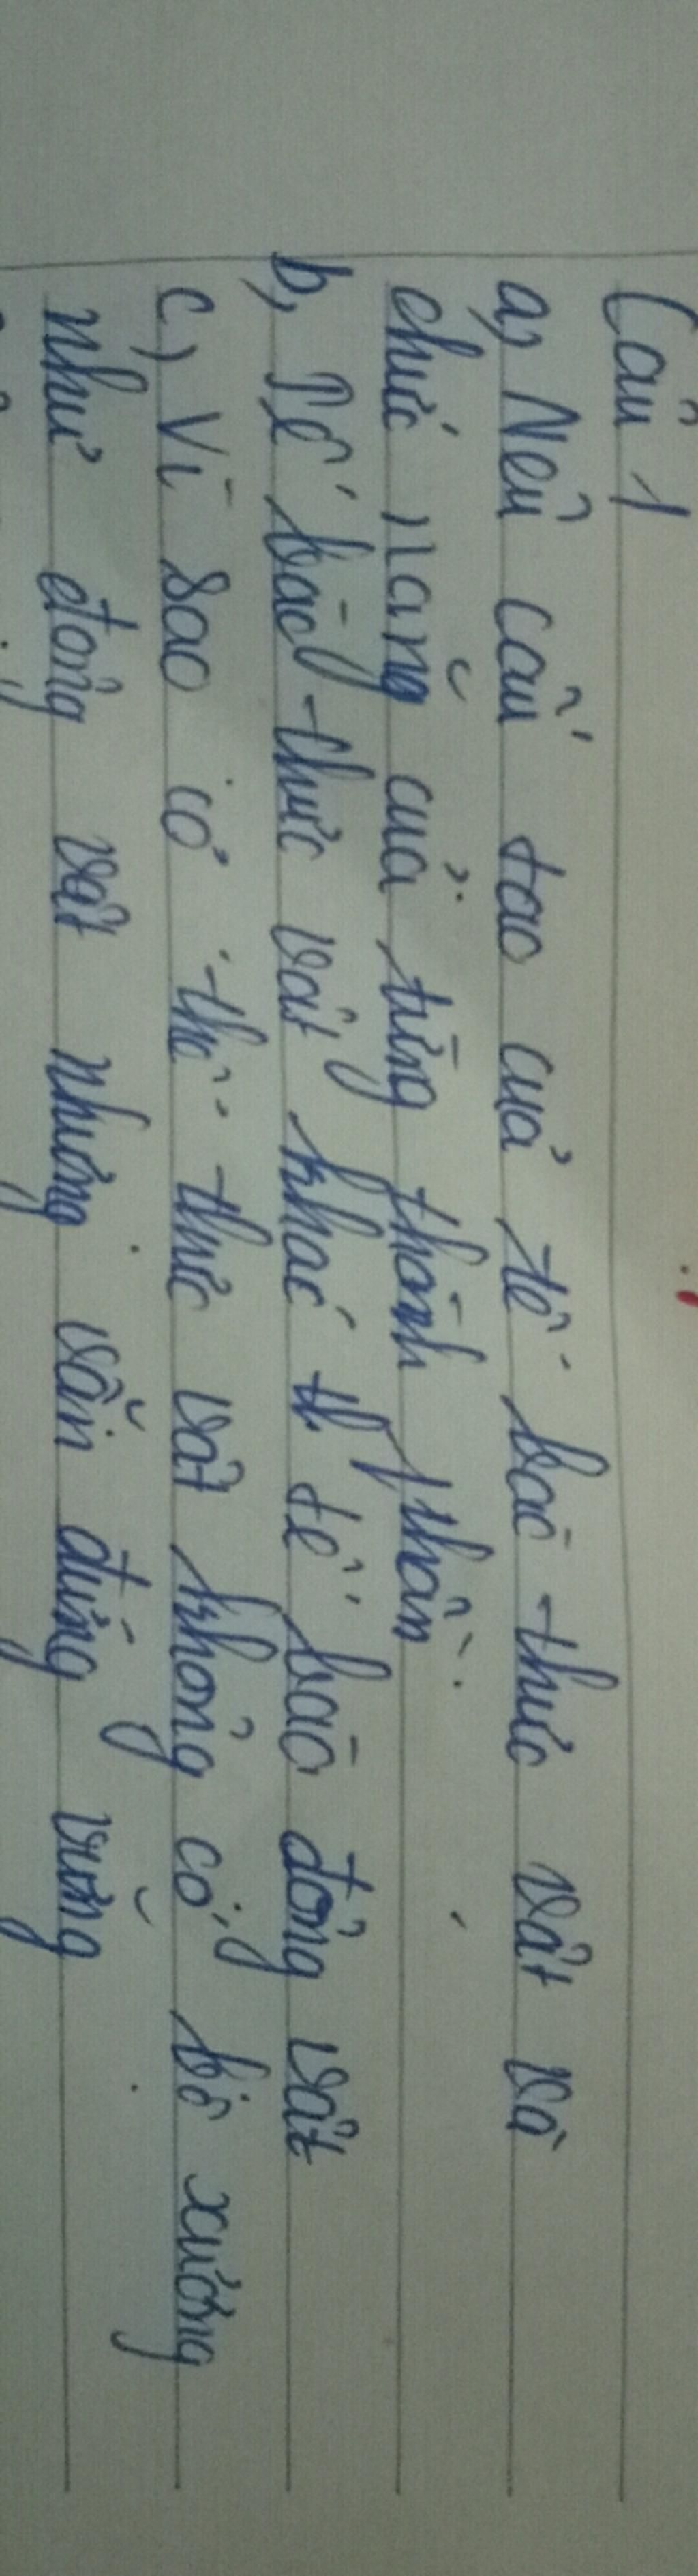 Câu 1
a, Nêu cấu tạo của tế bào thực vật và
chức năng của từng thành phần.
b, Tế bào thực vật khác tế bào động vật
c, Vì sao cơ thể thực vật không có bộ xương
như động vật nhưng vẫn đứng vững